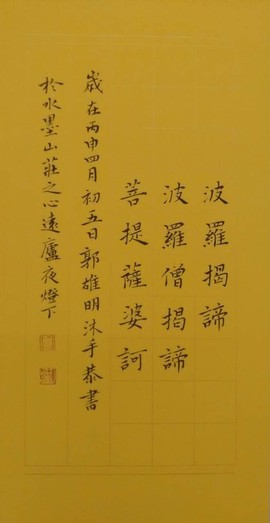 波羅揭諦
波羅僧揭諦
菩提薩婆訶
歲在丙申四月初五日郭雄明沐手恭書
於水墨山莊之心遠廬夜燈下